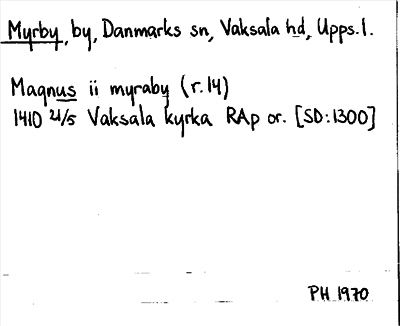 Myrby, by, Danmarks sn, Vaksala hd, Upps.l.
Magnus ii myraby (r.14)
1410 21/5 Vaksala kyrka RAp or. [SD:1300]
PH 1970